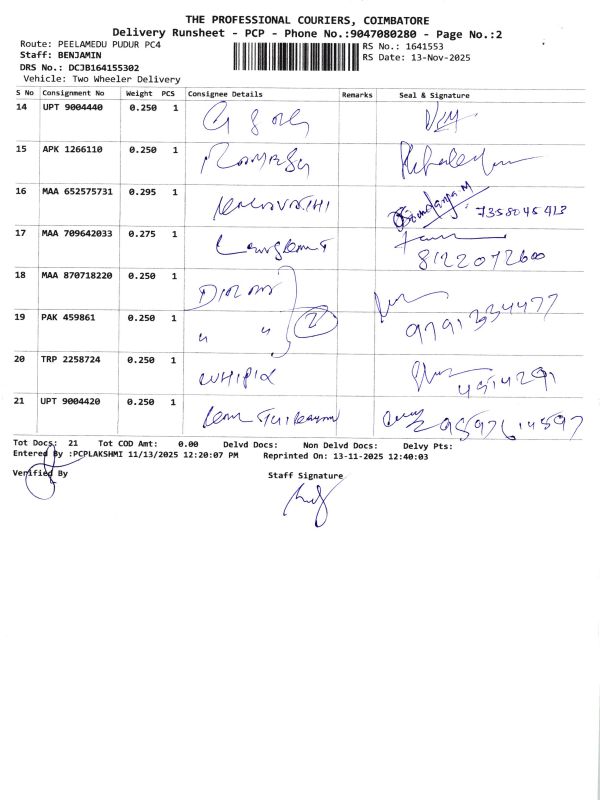 THE PROFESSIONAL COURIERS, COIMBATORE
Delivery Runsheet - PCP - Phone No.:9047080280 - Page No.:2
Route: PEELAMEDU PUDUR PC4 RS No.: 1641553
Staff: BENJAMIN RS Date: 13-Nov-2025
DRS No.: DCJB164155302
Vehicle: Two Wheeler Delivery
S No Consignment No Weight PCS Consignee Details Remarks Seal & Signature
14 UPT 9004440 0.250 1
15 APK 1266110 0.250 1
16 MAA 652575731 0.295 1 7358045413
17 MAA 709642033 0.275 1 8122072600
18 MAA 870718220 0.250 1
19 PAK 459861 0.250 1 " " 2 9791334477
20 TRP 2258724 0.250 1
21 UPT 9004420 0.250 1
Tot Docs: 21 Tot COD Amt: 0.00 Delvd Docs: Non Delvd Docs: Delvy Pts:
Entered By :PCPLAKSHMI 11/13/2025 12:20:07 PM Reprinted On: 13-11-2025 12:40:03
Verified By Staff Signature